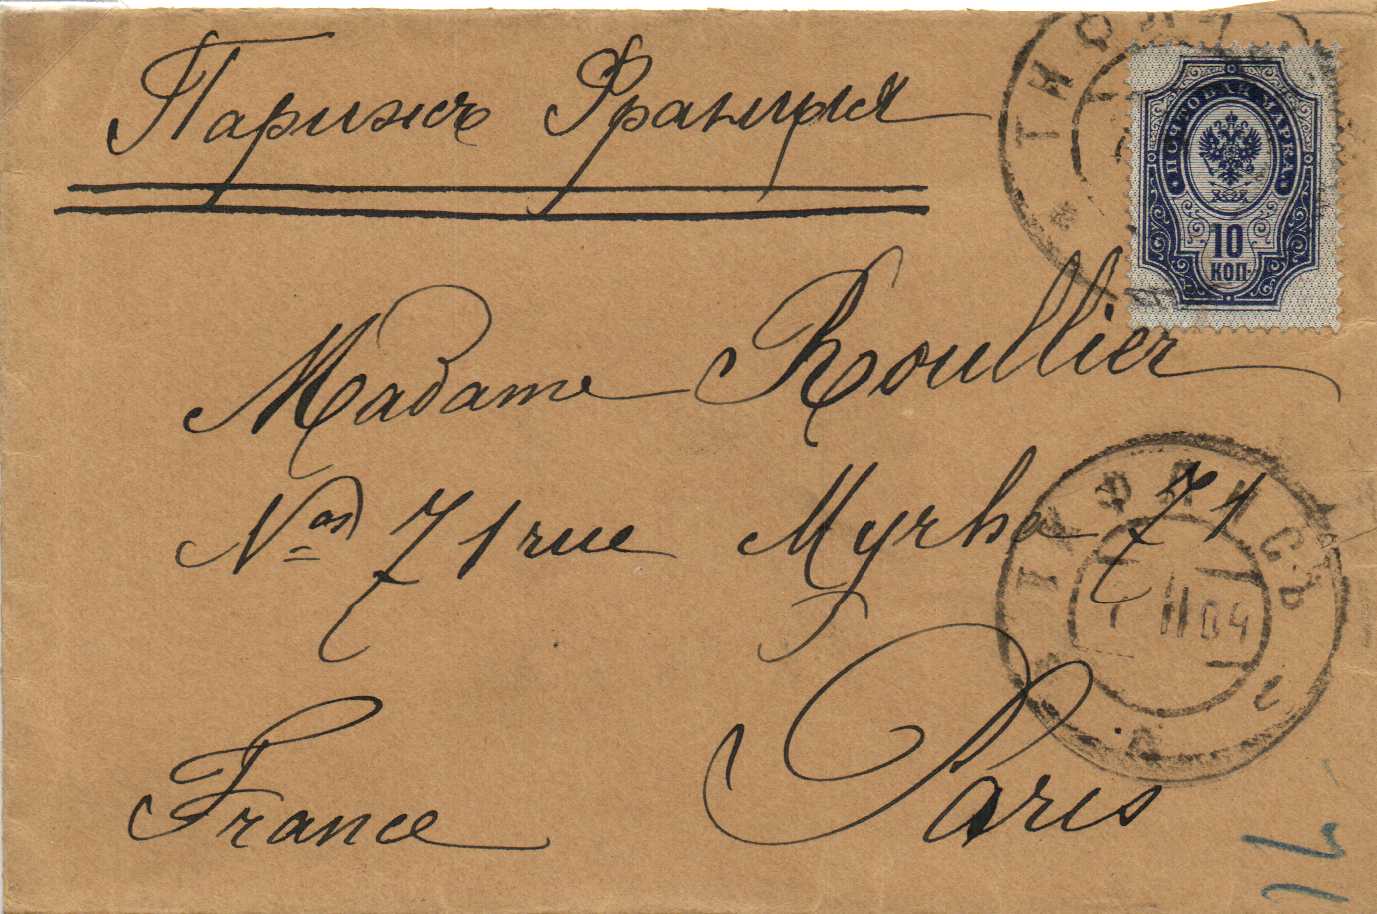 Парижъ Франция
ПОЧТОВАЯ МАРКА
10
КОП.
Madame Roullier
71 rue Myrha 71
ТИФЛИСЪ
II 04
France Paris